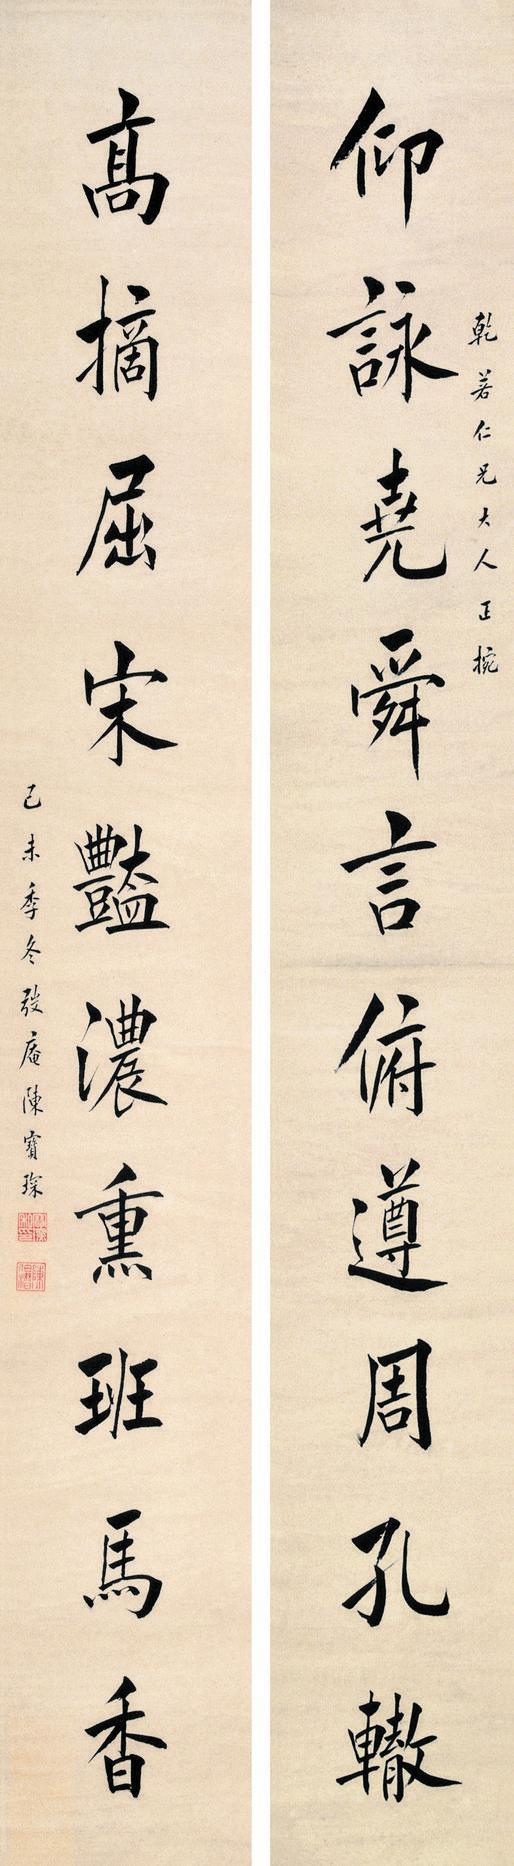 乾若仁兄大人正捥
仰詠堯舜言俯遵周孔轍
高摘屈宋豔濃熏班馬香
己未季冬弢庵陳寶琛